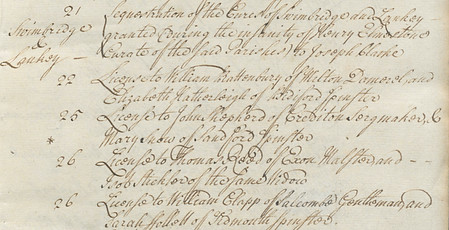 21 Sequestration of the Cures of Swimbridge and Lankey
Swimbridge granted (during the insanity of Henry
& Curate of the said Parishes) to Joseph Clarke
Lankey
22 License to William Rattenbury of Milton Damerel and
Elizabeth Hatherleigh of Spinster
25 License to John Shepherd of Crediton Sergmaker, &
* Mary Snow of Sandford Spinster
26 License to Thomas Reed of Exon Malster, and - -
of the same Widow
26 License to William Clapp of Salcombe Gentleman, and
Sarah Follett of Sidmouth Spinster.